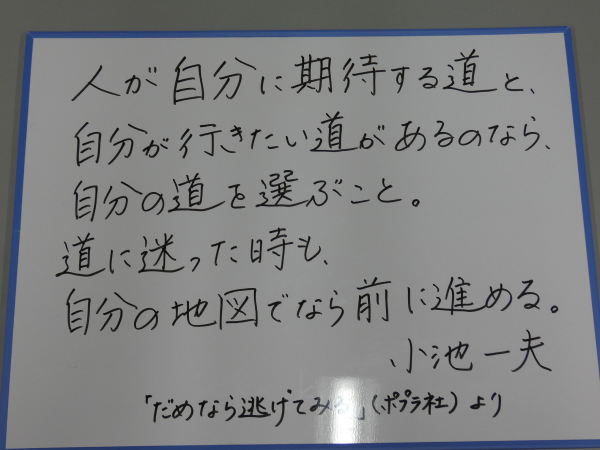 人が自分に期待する道と、
自分が行きたい道があるのなら、
自分の道を選ぶこと。
道に迷った時も、
自分の地図でなら前に進める。
小池一夫
「だめなら逃げてみる」(ポプラ社)より